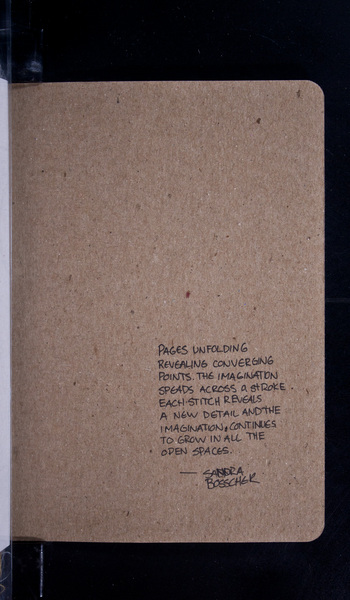 PAGES UNFOLDING
REVEALING CONVERGING
POINTS. THE IMAGINATION
SPEADS ACROSS A STROKE.
EACH STITCH REVEALS
A NEW DETAIL AND THE
IMAGINATION, CONTINUES
TO GROW IN ALL THE
OPEN SPACES.
— SANDRA
BOSSCHER